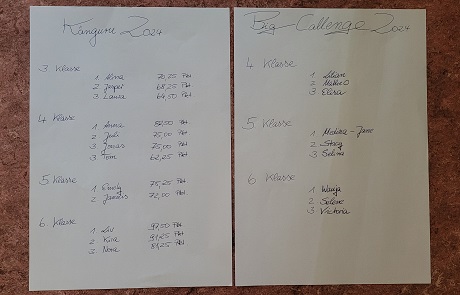 Känguru 2024
3 Klasse
1 Alma 70,25 Pkt
2 Jasper 68,25 Pkt
3 Laura 64,50 Pkt
4 Klasse
1 Anna
2 Juli 75,00 Pkt
3 Jonas 75,00 Pkt
3 Tom 62,25 Pkt
5 Klasse
1 Emily 75,25 Pkt
2 72,00 Pkt
6 Klasse
1 Liv 97,50 Pkt
2 Kira 91,25 Pkt
3 Nora 81,25 Pkt
Big-Callenge 2024
4 Klasse
1 Lilian
2
3 Elisa
5 Klasse
1 Melissa - Jane
2
3 Selina
6 Klasse
1 Wanja
2 Selene
3 Victoria